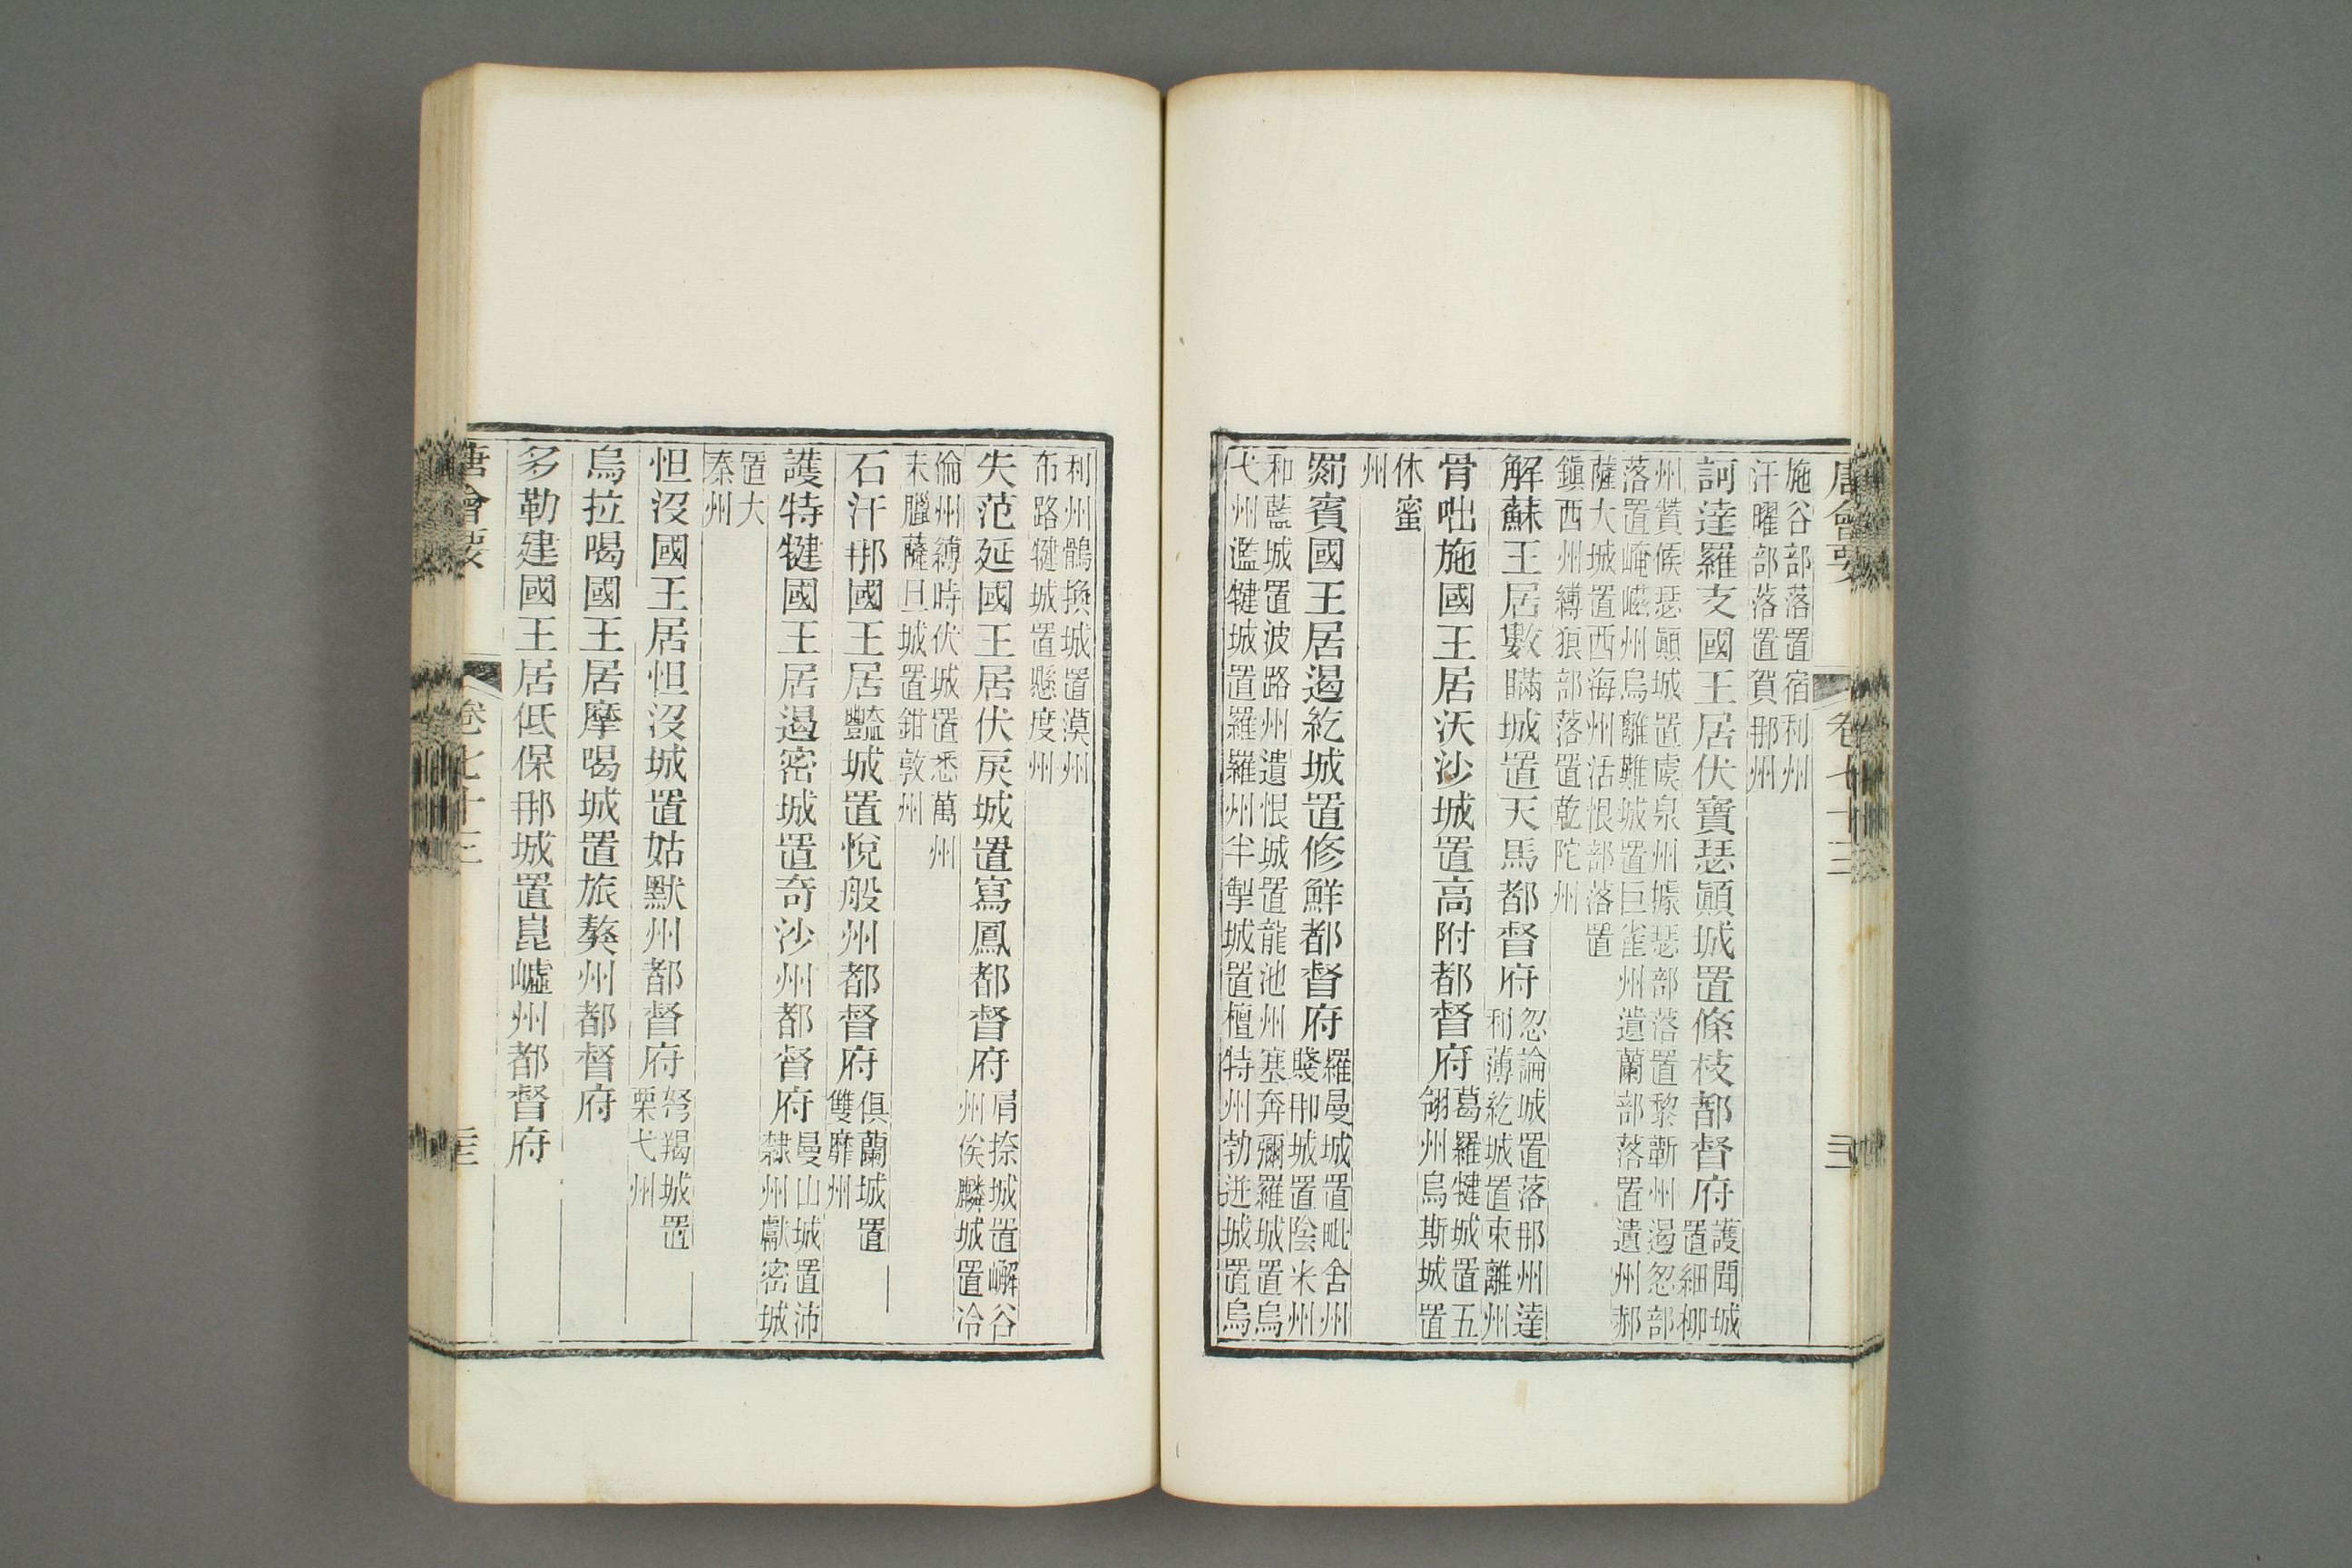 唐會要 卷七十三 三
施谷部落置宿利州
汗曜部落置賀那州
訶達羅支國王居伏寶瑟顚城置條枝都督府護聞城
置細柳
州贊候瑟顚城置虞泉州據瑟部落置黎蘄州遏忽部
落置崦嵫州烏離難城置巨雀州遺蘭部落置遺州郝
薩大城置西海州活恨部落置
鎭西州縛狼部落置乾陀州
解蘇王居數瞞城置天馬都督府忽論城置落那州達
利薄紇城置束離州
骨咄施國王居沃沙城置高附都督府葛羅犍城置五
翎州烏斯城置
休蜜
州
罽賓國王居遏紇城置修鮮都督府羅曼城置毗舍州
賤那城置陰米州
和藍城置波路州遺恨城置龍池州塞奔彌羅城置烏
弋州濫犍城置羅羅州半掣城置檀特州勃逬城置烏
利州鶻換城置漠州
布路犍城置懸度州
失范延國王居伏戾城置寫鳳都督府肩捺城置嶰谷
州俟麟城置冷
倫州縛時伏城置悉萬州
末臘薩旦城置鉗敦州
石汗那國王居豔城置悅般州都督府俱蘭城置
雙靡州
護特犍國王居遏密城置奇沙州都督府曼山城置沛
隸州獻密城
置大
秦州
怛沒國王居怛沒城置姑默州都督府弩羯城置
栗弋州
烏拉喝國王居摩喝城置旅獒州都督府
多勒建國王居低保那城置崑嶇州都督府
唐會要 卷七十三